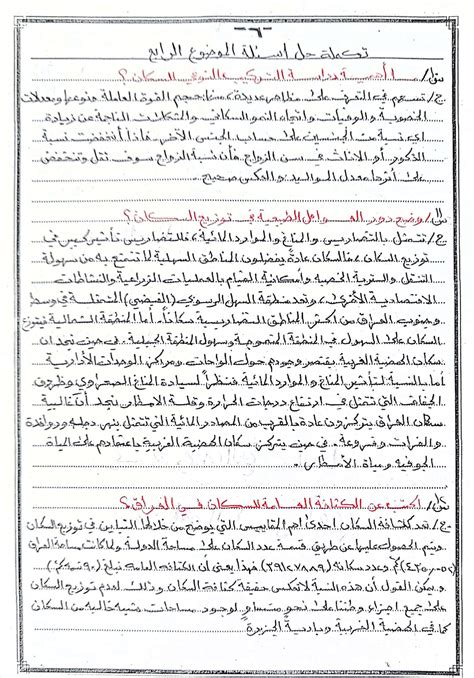 -٦-
تكملة حل اسئلة الموضوع الرابع
س١/ ما أهمية دراسة التركيب النوعي للسكان؟
ج/ تسهم في التعرف على مظاهر عديدة، منها: حجم القوة العاملة ونوعها ومعدلات
الخصوبة والوفيات واتجاه النمو السكاني والمشكلات الناتجة عن زيادة
اي نسبة من الجنسين على حساب الجنس الآخر، فاذا انخفضت نسبة
الذكور أو الاناث في سن الزواج فأن نسبة الزواج سوف تقل وتنخفض
على أثرها معدل المواليد، والعكس صحيح.
وضح دور العوامل الطبيعية في توزيع السكان؟
ج/ تتمثل بالتضاريس والمناخ والموارد المائية، فللتضاريس تأثير كبير في
توزيع السكان، فالسكان عادةً يفضلون المناطق السهلية لما تتمتع به من سهولة
التنقل والتربة الخصبة وأمكانية القيام بالعمليات الزراعية والنشاطات
الاقتصادية الأخرى، وتعد منطقة السهل الرسوبي (الفيضي) المتمثلة في وسط
وجنوب العراق من أكثر المناطق التضاريسية سكاناً، أما المنطقة الشمالية فيتوزع
السكان على السهول في المنطقة المتموجة وسهول المنطقة الجبلية، في حين نجد ان
سكان الهضبة الغربية يقتصر وجودهم حول الواحات ومراكز الوحدات الأدارية
أما بالنسبة لتأثير المناخ والموارد المائية، فنظراً لسيادة المناخ الصحراوي وظروف
الجفاف التي تتمثل في ارتفاع درجات الحرارة وقلة الامطار، نجد أن غالبية
سكان العراق يتركزون عادة بالقرب من المصادر المائية التي تتمثل بنهر دجلة وروافده
والفرات وفروعه، في حين يتركز سكان الهضبة الغربية باعتمادهم على المياه
الجوفية ومياه الأمطار.
اكتب عن الكثافة العامة للسكان في العراق؟
ج/ تعد كثافة السكان احدى اهم المقاييس التي يوضح من خلالها التباين في توزيع السكان
ويتم الحصول عليها عن طريق قسمة عدد السكان على مساحة الدولة، ولما كانت مساحة العراق
وعدد سكانه فهذا يعني أن الكثافة العامة تبلغ
ويمكن القول أن هذه النسبة لا تعكس حقيقة كثافة السكان وذلك لعدم توزيع السكان
على جميع اجزاء وطننا على نحوٍ متساوٍ لوجود مساحات شبه خالية من السكان
كما في الهضبة الغربية وبادية الجزيرة